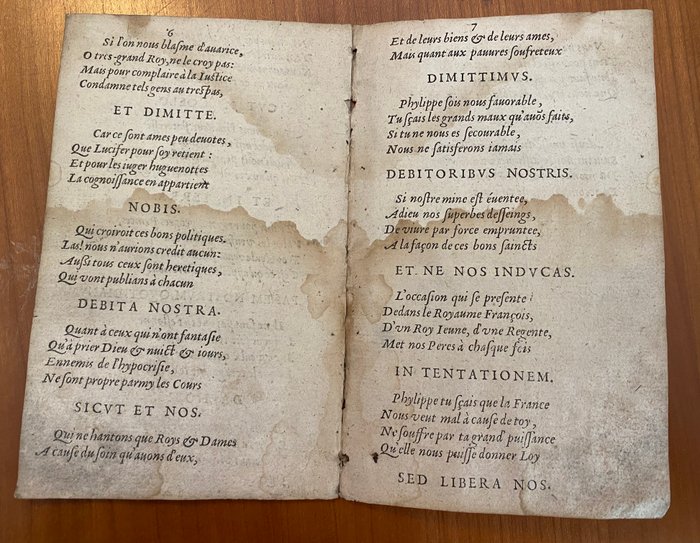 6
Si l'on nous blasme d'auarice,
O tres-grand Roy, ne le croy pas:
Mais pour complaire à la Iustice
Condamne tels gens au trespas,
ET DIMITTE.
Car ce sont ames peu deuotes,
Que Lucifer pour soy retient:
Et pour les iuger huguenottes
La cognoissance en appartient
NOBIS.
Qui croiroit ces bons politiques,
Las! nous n'aurions credit aucun:
Aussi tous ceux sont heretiques,
Qui vont publians à chacun
DEBITA NOSTRA.
Quant à ceux qui n'ont fantasie
Qu'à prier Dieu & nuict & iours,
Ennemis de l'hypocrisie,
Ne sont propre parmy les Cours
SICVT ET NOS.
Qui ne hantons que Roys & Dames
A cause du soin qu'auons d'eux,
7
Et de leurs biens & de leurs ames,
Mais quant aux pauures soufreteux
DIMITTIMVS.
Phylippe sois nous fauorable,
Tu sçais les grands maux qu'auõs faits,
Si tu ne nous es secourable,
Nous ne satisferons iamais
DEBITORIBVS NOSTRIS.
Si nostre mine est éuentee,
Adieu nos superbes desseings,
De viure par force empruntee,
A la façon de ces bons saincts
ET NE NOS INDVCAS.
L'occasion qui se presente
Dedans le Royaume François,
D'vn Roy Ieune, d'vne Regente,
Met nos Peres à chasque fois
IN TENTATIONEM.
Phylippe tu sçais que la France
Nous veut mal à cause de toy,
Ne souffre par ta grand puissance
Qu'elle nous puisse donner Loy
SED LIBERA NOS.